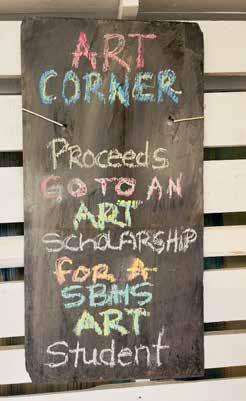 ART
CORNER
PROCEEDS
GO TO AN
ART
SCHOLARSHIP
FOR A
SBHS
ART
Student